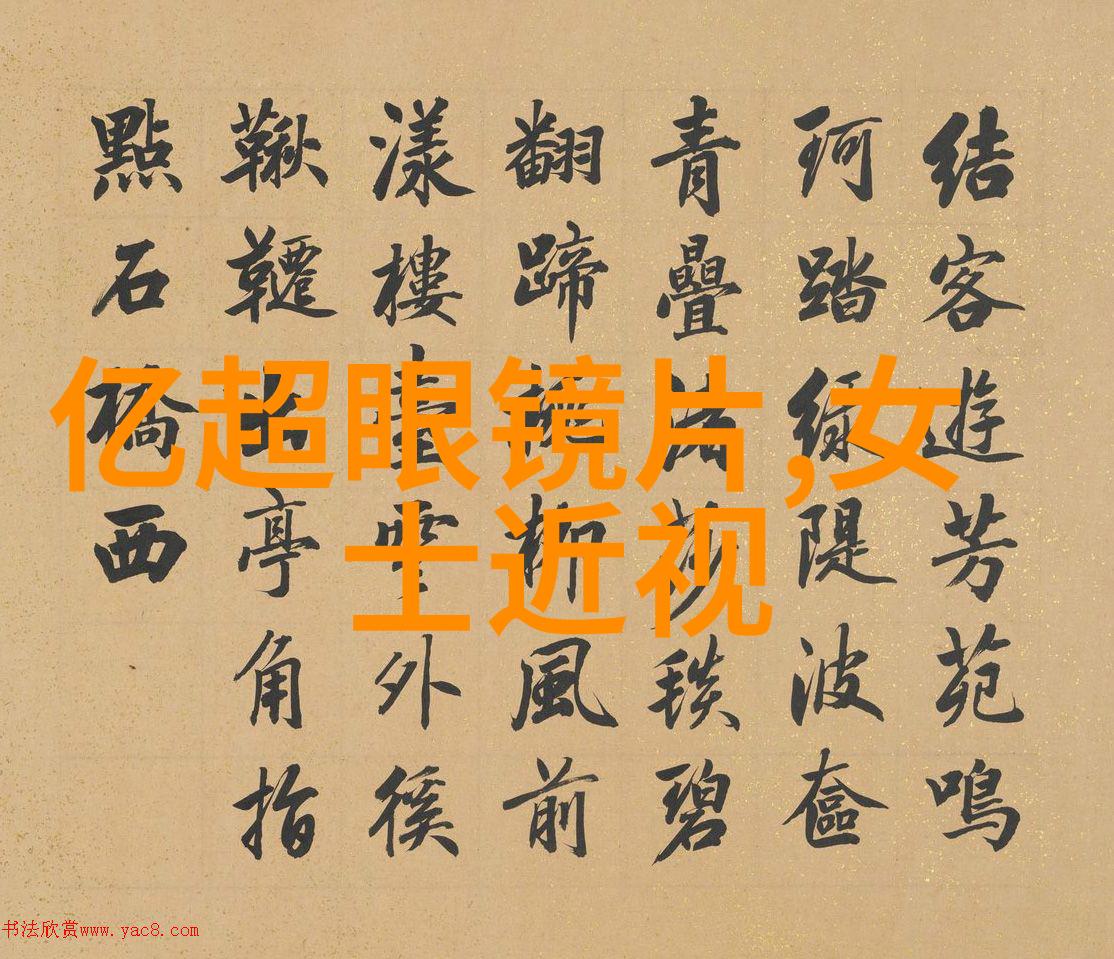 結客遊芳苑鳴
珂踏綠隄波奩
青疊莎毯碧
翻蹄柳風前
漾樓臺外徯
鞦韆亭角指
點石橋西
亿超眼镜片,女
士近视
书法欣赏www.yac8.com